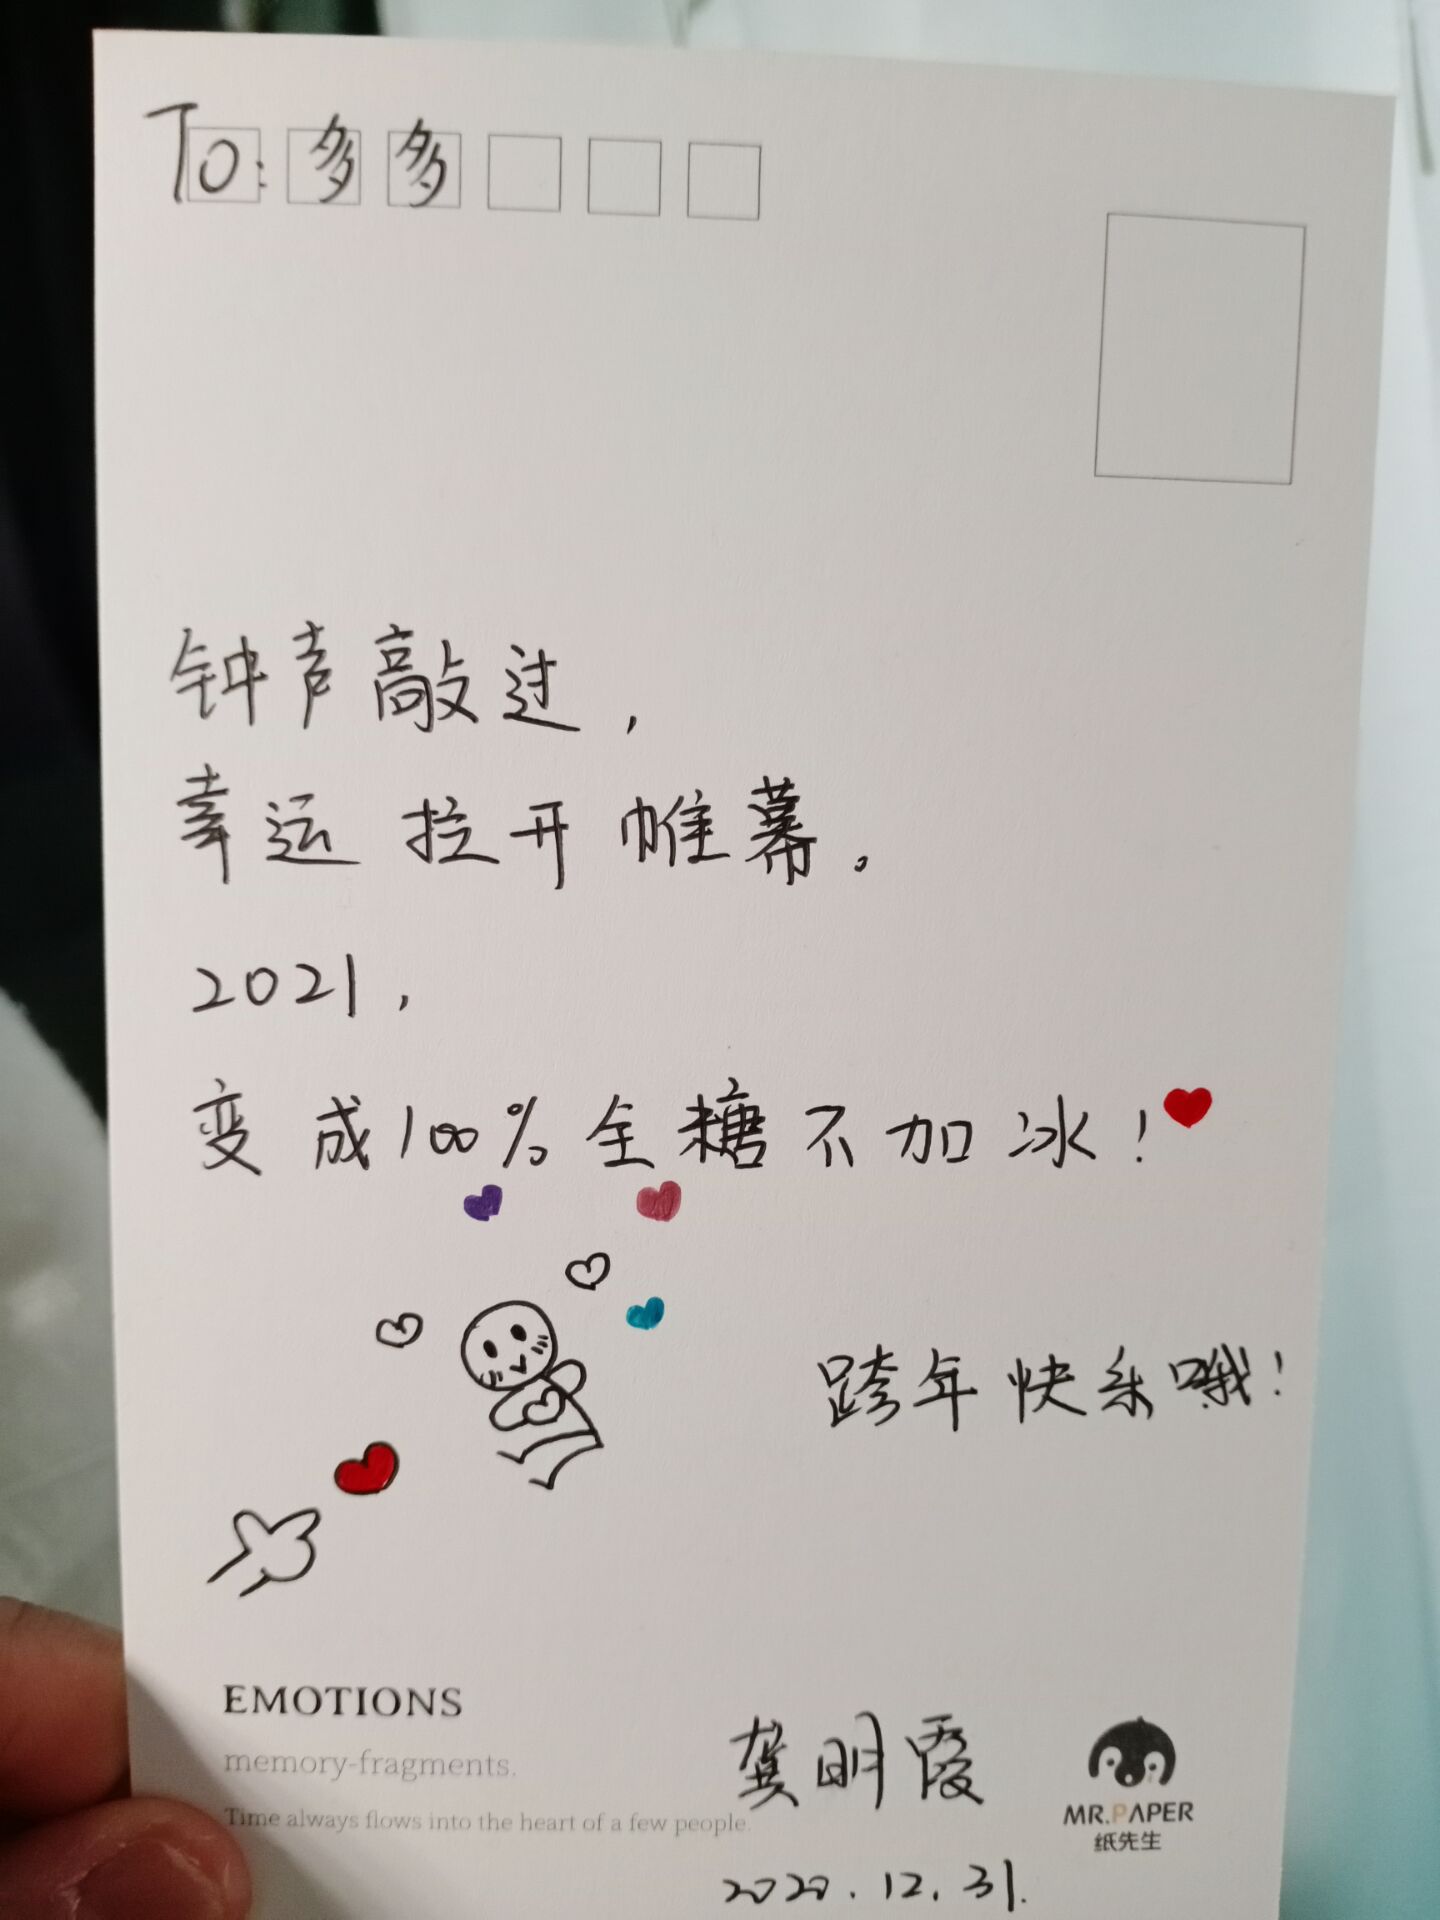 To: 多多
钟声敲过,
幸运拉开帷幕。
2021,
变成100%全糖不加冰!
跨年快乐哦!
EMOTIONS
memory-fragments.
Time always flows into the heart of a few people.
龚明霞
MR.PAPER
纸先生
2020.12.31.